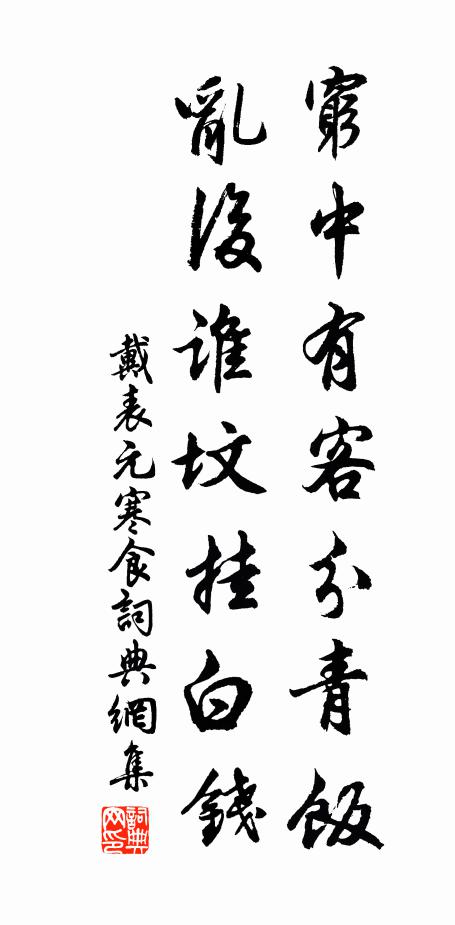 窮中有客分青飯
亂後誰墳挂白錢
戴表元寒食詞典網集
詞典网印